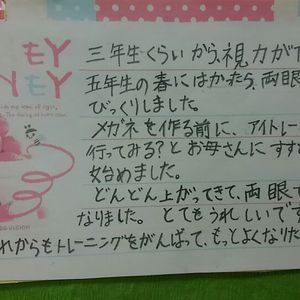 EY
NEY
三年生くらいから、視力が
五年生の春にはかったら、両眼
びっくりしました。
メガネを作る前に、アイトレー
行ってみる？とお母さんにすす
始めました。
どんどん上がってきて、両眼で
なりました。とてもうれしいです
れからもトレーニングをがんばって、もっとよくなりた